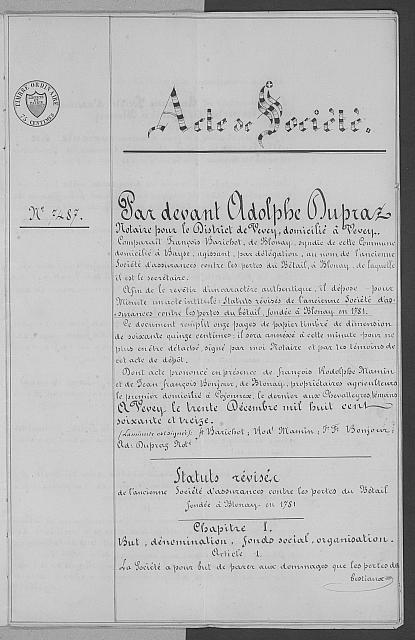 TIMBRE ORDINAIRE
75 CENTIMES
Acte de Société.
N° 7487.
Par devant Adolphe Dupraz
Notaire pour le District de Vevey, domicilié à Vevey.
Comparaît François Barichot, de Blonay, syndic de cette Commune
domicilié à agissant, par délégation, au nom de l'ancienne
Société d'assurances contre les pertes du Bétail, à Blonay, de laquelle
il est le secrétaire.
Afin de le revêtir d'un caractère authentique, il dépose pour
Minute un acte intitulé: Statuts révisés de l'ancienne Société d'as-
surances contre les pertes du bétail, fondée à Blonay en 1781.
Ce document remplit onze pages de papier timbré de dimension
de soixante quinze centimes; il sera annexé à cette minute pour ne
plus en être détaché, signé par moi Notaire et par les témoins de
cet acte de dépôt.
Dont acte prononcé en présence de François Rodolphe Mamin
et de Jean François Bonjour, de Blonay, propriétaires agriculteurs
le premier domicilié à Cojonnex, le dernier aux Chevalleyres, témoins
A Vevey, le trente Décembre mil huit cent
soixante et treize.
(La minute est signée): fs Barichot; Rod. Mamin; Bonjour;
Ad: Dupraz Not.
Statuts révisés
de l'ancienne Société d'assurances contre les pertes du Bétail
fondée à Blonay en 1781
Chapitre I.
But, dénomination, fonds social, organisation.
Article 1.
La Société a pour but de parer aux dommages que les pertes de
bestiaux